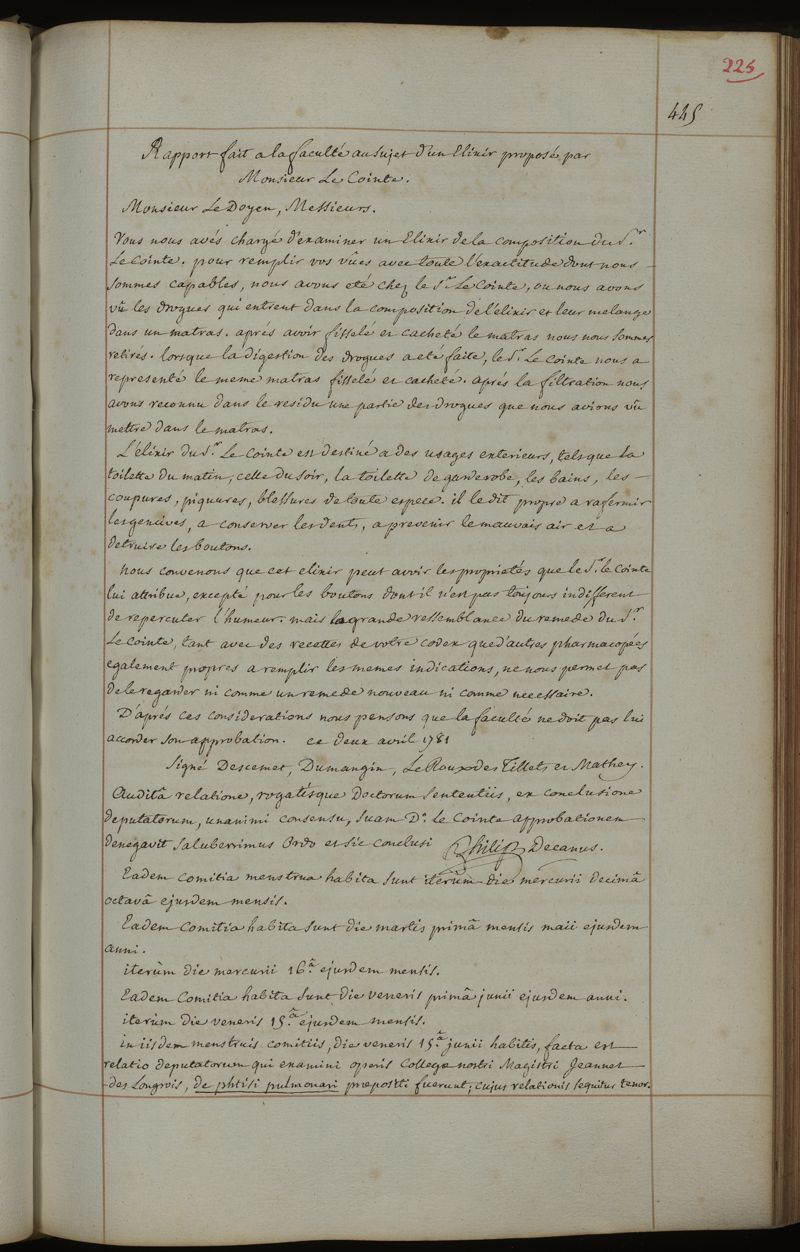 225
445
Rapport fait a la faculté au sujet d'un Elixir proposé par
Monsieur Le Cointe.
Monsieur Le Doyen, Messieurs.
Vous nous avés chargé d'examiner un Elixir de la composition du S.r
Le Cointe. pour remplir vos vûes avec toute l'exactitude dont nous
sommes capables, nous avons eté chez le S.r Le Cointe, ou nous avons
vû les drogues qui entrent dans la composition de l'élixir et leur melange
dans un matras. aprés avoir fisselé et cacheté le matras nous nous sommes
retirés. lorsque la digestion des drogues a eté faite, le S.r Le Cointe nous a
representé le meme matras fisselé et cacheté. aprés la filtration nous
avons reconnu dans le residu une partie des drogues que nous avions vû
mettre dans le matras.
L'élixir du S.r Le Cointe est destiné a des usages exterieurs, tels que la
toilette du matin, celle du soir, la toilette de garderobe, les bains, les
coupures, piquures, blessures de toute espece. il le dit propre a rafermir
les gencives, a conserver les dents, a prevenir le mauvais air et a
detruire les boutons.
Nous convenons que cet elixir peut avoir les proprietés que le S.r le Cointe
lui attribue, excepté pour les boutons dont il n'est pas toujours indifferent
de repercuter l'humeur. mais la grande ressemblance du remede du S.r
Le Cointe, tant avec des recettes de votre codex que d'autres pharmacopées
egalement propres a remplir les memes indications, ne nous permet pas
de le regarder ni comme un remede nouveau ni comme necessaire.
D'aprés ces considerations nous pensons que la faculté ne doit pas lui
accorder son approbation. ce deux avril 1781
Signé Descemet, Dumangin, Le Roux des Tillets et Mathey.
Auditâ relatione, rogatisque Doctorum sententiis, ex conclusione
deputatorum, unanimi consensu, suam D.o Le Cointe approbationem
denegavit saluberrimus Ordo et sic conclusi Philip Decanus.
Eadem comitia menstrua habita sunt iterùm die mercurii decimâ
octavâ ejusdem mensis.
Eadem Comitia habita sunt die martis primâ mensis maii ejusdem
anni.
iterùm die mercurii 16.â ejusdem mensis.
Eadem Comitia habita sunt die veneris primâ junii ejusdem anni.
iterùm die veneris 15.â ejusdem mensis.
in iisdem menstruis comitiis, die veneris 15.â junii habitis, facta est
relatio deputatorum qui examini operis Collegæ nostri Magistri Jeannet
des Longrois, de phtisi pulmonari præpositi fuerunt, cujus relationis sequitur tenor.